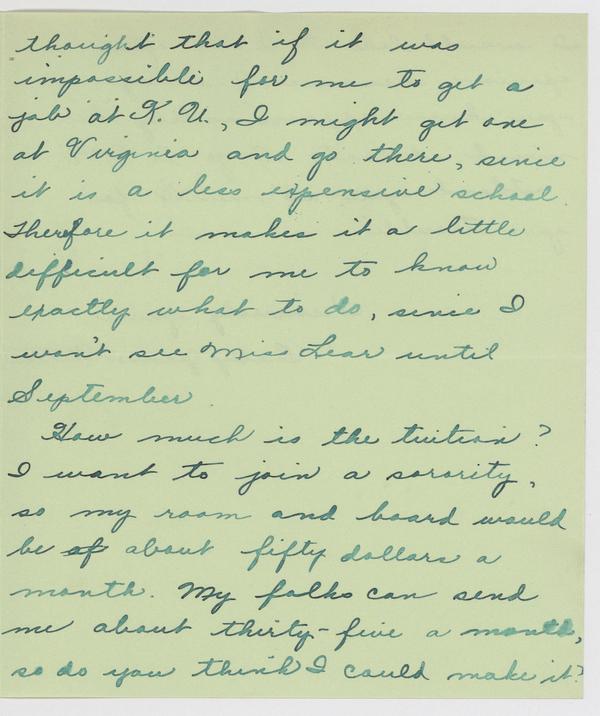 thought that if it was
impossible for me to get a
job at K. U., I might get one
at Virginia and go there, since
it is a less expensive school.
Therefore it makes it a little
difficult for me to know
exactly what to do, since I
won't see Miss Lear until
September.
How much is the tuition?
I want to join a sorority,
so my room and board would
be of about fifty dollars a
month. My folks can send
me about thirty-five a month,
so do you think I could make it?